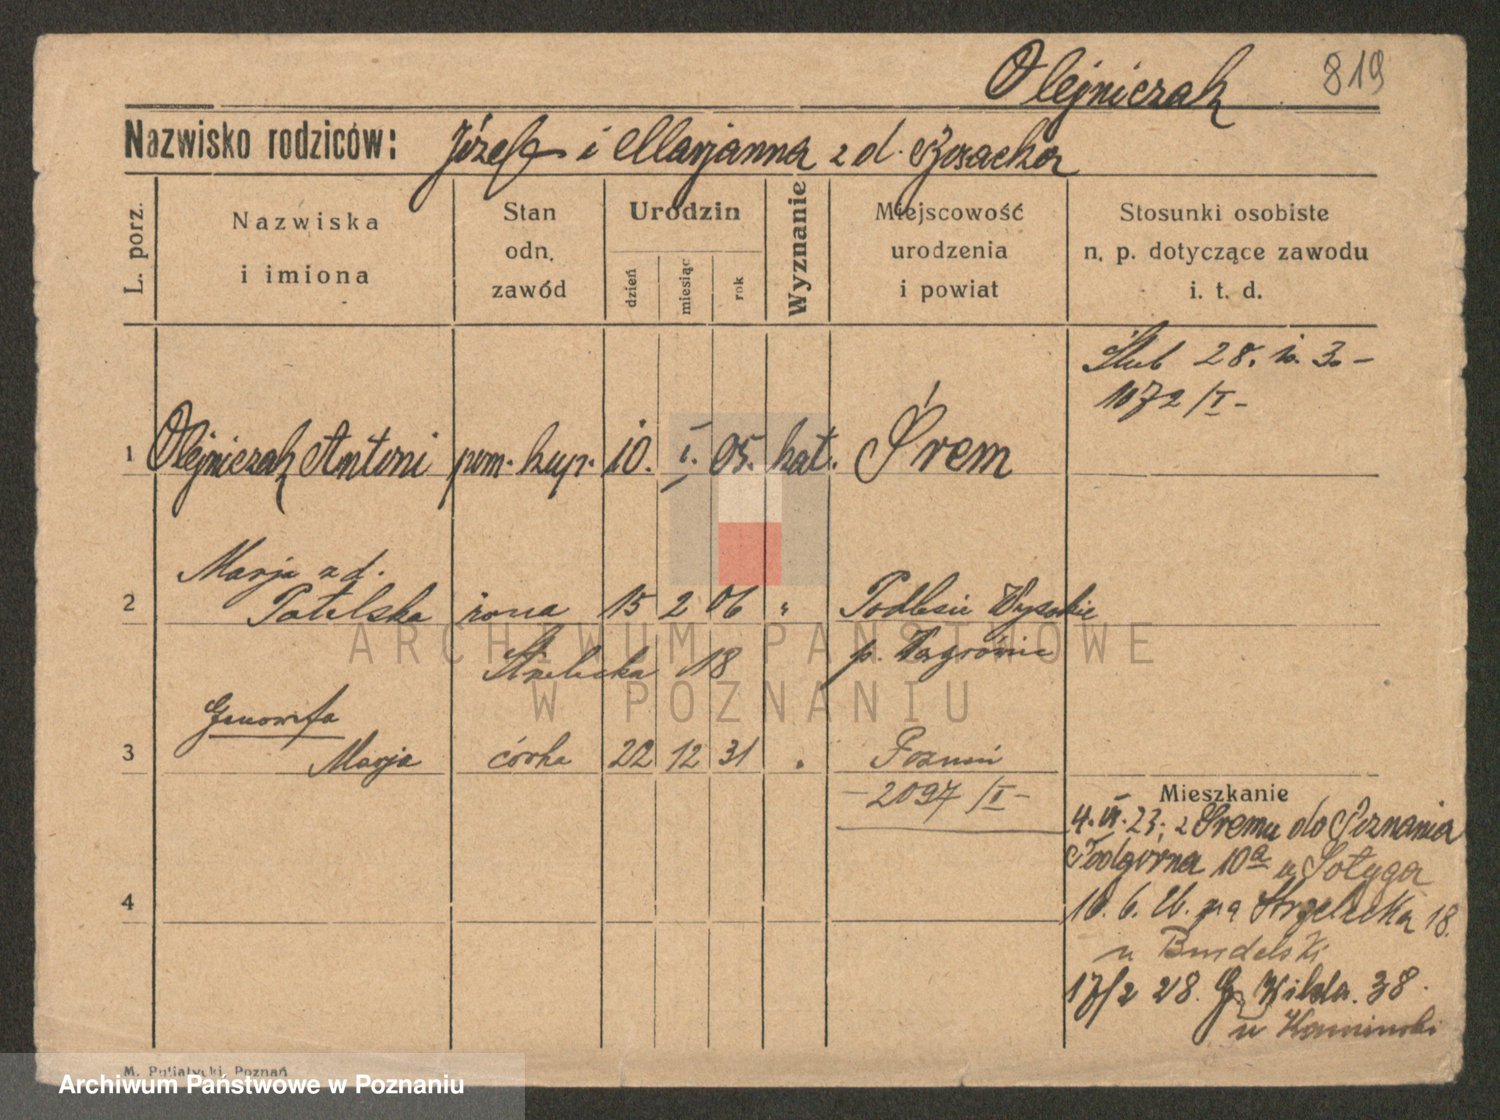 Olejniczak 819
Nazwisko rodziców: Józef i Marjanna z d.
L. porz.
Nazwiska
i imiona
Stan
odn.
zawód
Urodzin
dzień
miesiąc
rok
Wyznanie
Miejscowość
urodzenia
i powiat
Stosunki osobiste
n. p. dotyczące zawodu
i. t. d.
Ślub 28. 10. 30 –
1072 / I –
1 Olejniczak Antoni pom. kup. 10. I. 05. kat. Śrem
Marja z d.
2 Patelska żona 15 2 06 " Podlesie Wysokie
Strzelecka 18 p. Wągrówiec
Genowefa
3 Marja córka 22 12 31 " Poznań
– 2097 / I –
Mieszkanie
4. VI. 23; z Śremu do Poznania
Podgórna 10a u Sołyga
4
10. 6. 26. na Strzelecka 18.
u Budelski
17/2 28. G. Wilda. 38.
u Kaminski
M. Putiatycki, Poznań
ARCHIWUM PAŃSTWOWE
W POZNANIU
Archiwum Państwowe w Poznaniu